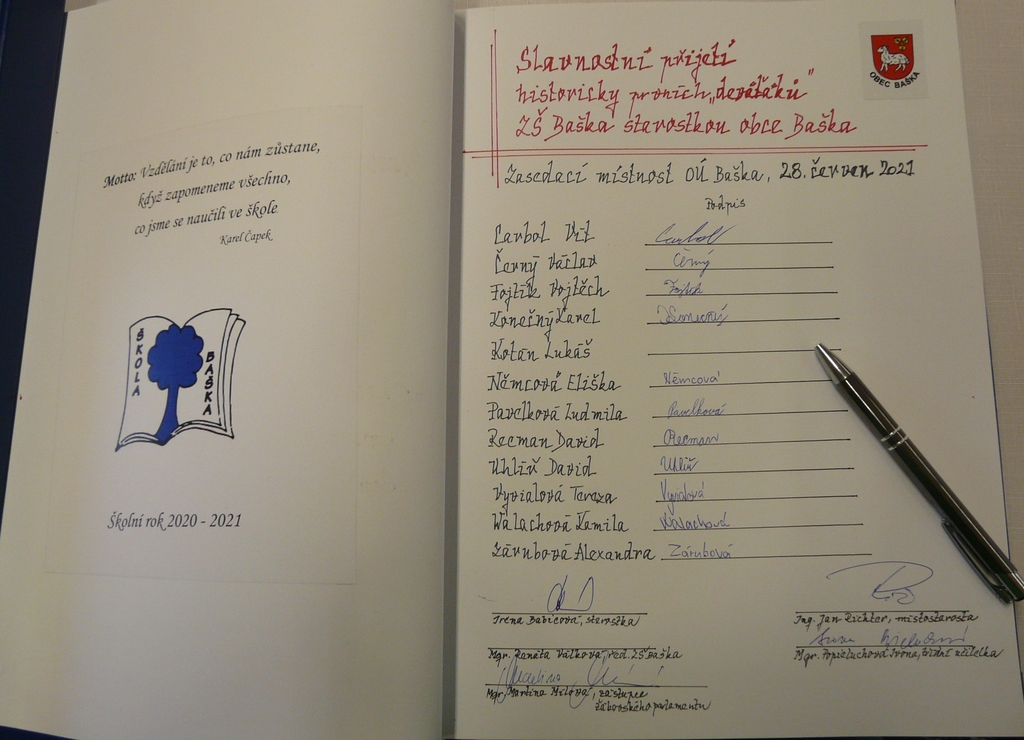 Motto: Vzdělání je to, co nám zůstane,
když zapomeneme všechno,
co jsme se naučili ve škole
Karel Čapek
ŠKOLA
BAŠKA
Školní rok 2020 - 2021
OBEC BAŠKA
Slavnostní přijetí
historicky prvních „deváťáků"
ZŠ Baška starostkou obce Baška
Zasedací místnost OÚ Baška, 28. červen 2021
Podpis
Carbol Vít Carbol
Černý Václav Černý
Fojtík Vojtěch Fojtík
Konečný Karel Konečný
Kotan Lukáš
Němcová Eliška Němcová
Pavelková Ludmila Pavelková
Recman David Recman
Uhlíř David Uhlíř
Vyvialová Tereza
Walachová Kamila Walachová
Zárubová Alexandra Zárubová
Irena Babicová, starostka
Ing. Jan Richter, místostarosta
Mgr. Renáta Válková, řed. ZŠ Baška
Mgr. Popieluchová Ivona, třídní učitelka
Mgr. Martina Milová, zástupce
žákovského parlamentu